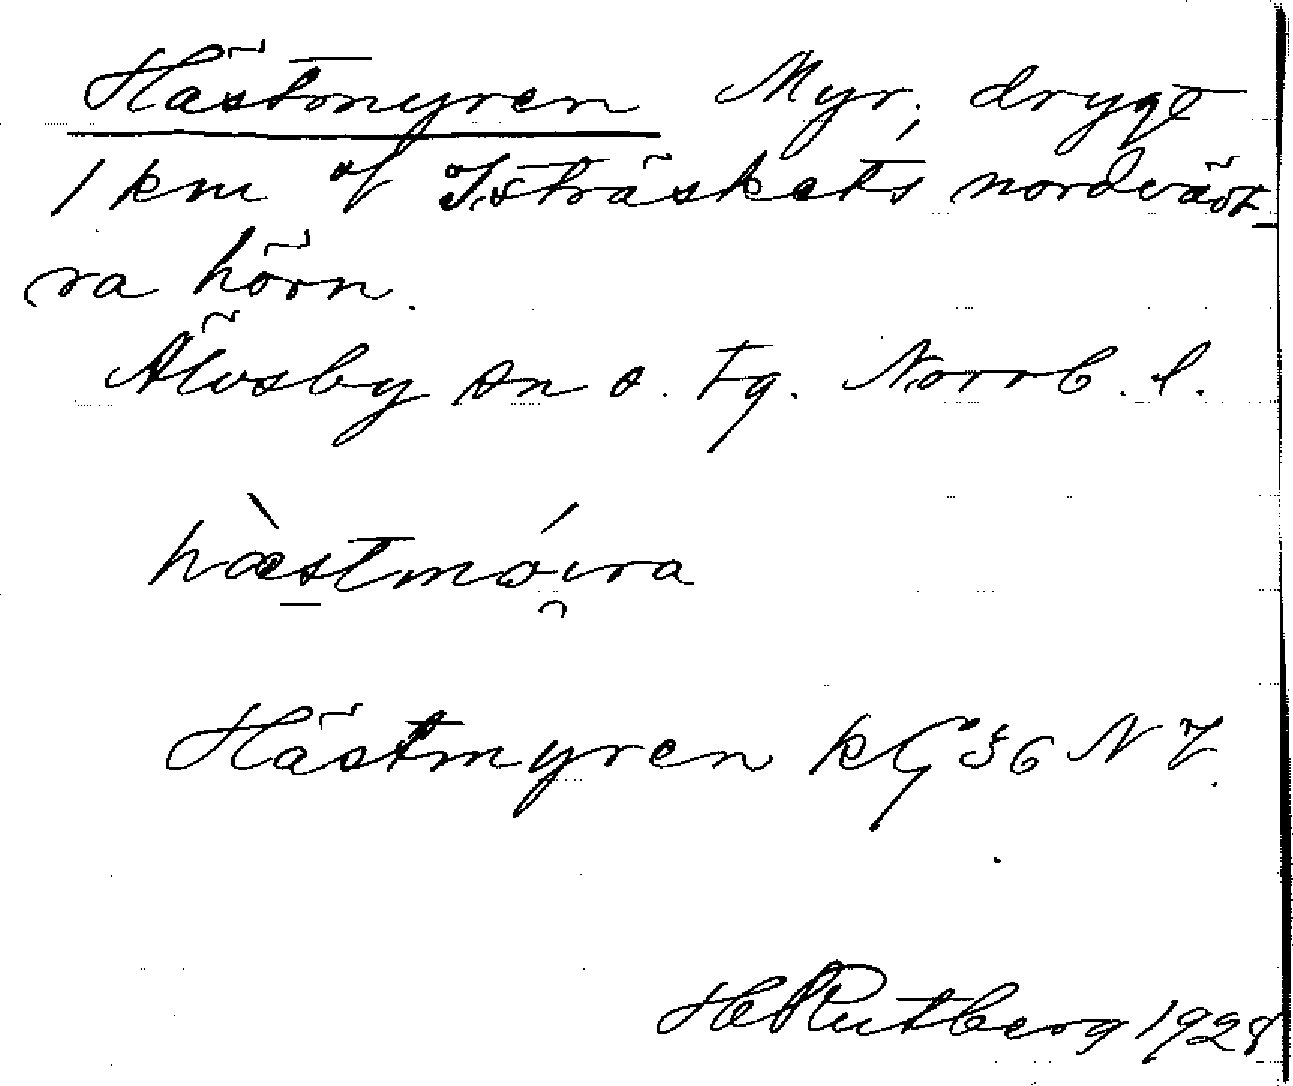 Hästmyren Myr, drygt
1 km v Isträskets nordväst-
ra hörn.
Älvsby sn o. tg. Norrb. l.
hæ̀stmǿɩra
Hästmyren kG 36 NV.
H Rutberg 1928